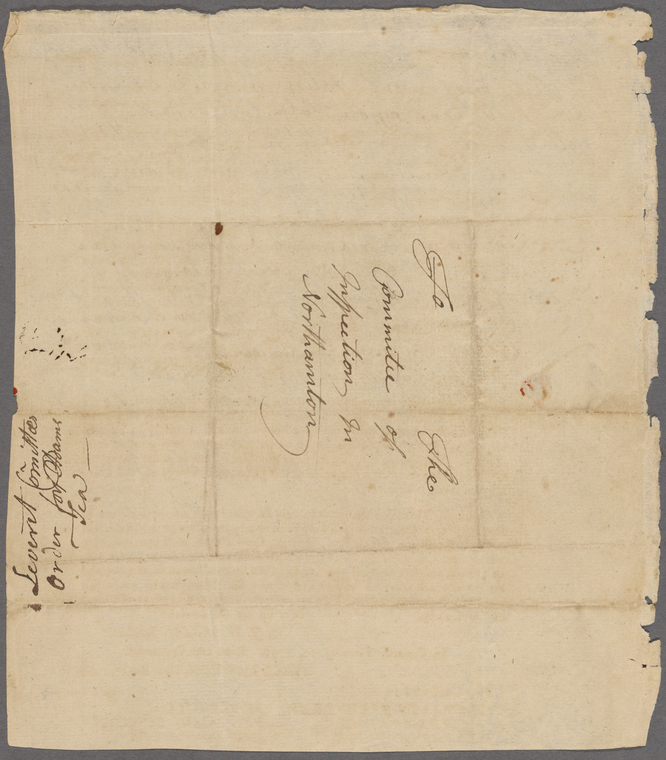 To The
Committee of
Inspection In
Northamton
Leverit Comittee
Order for
Tea